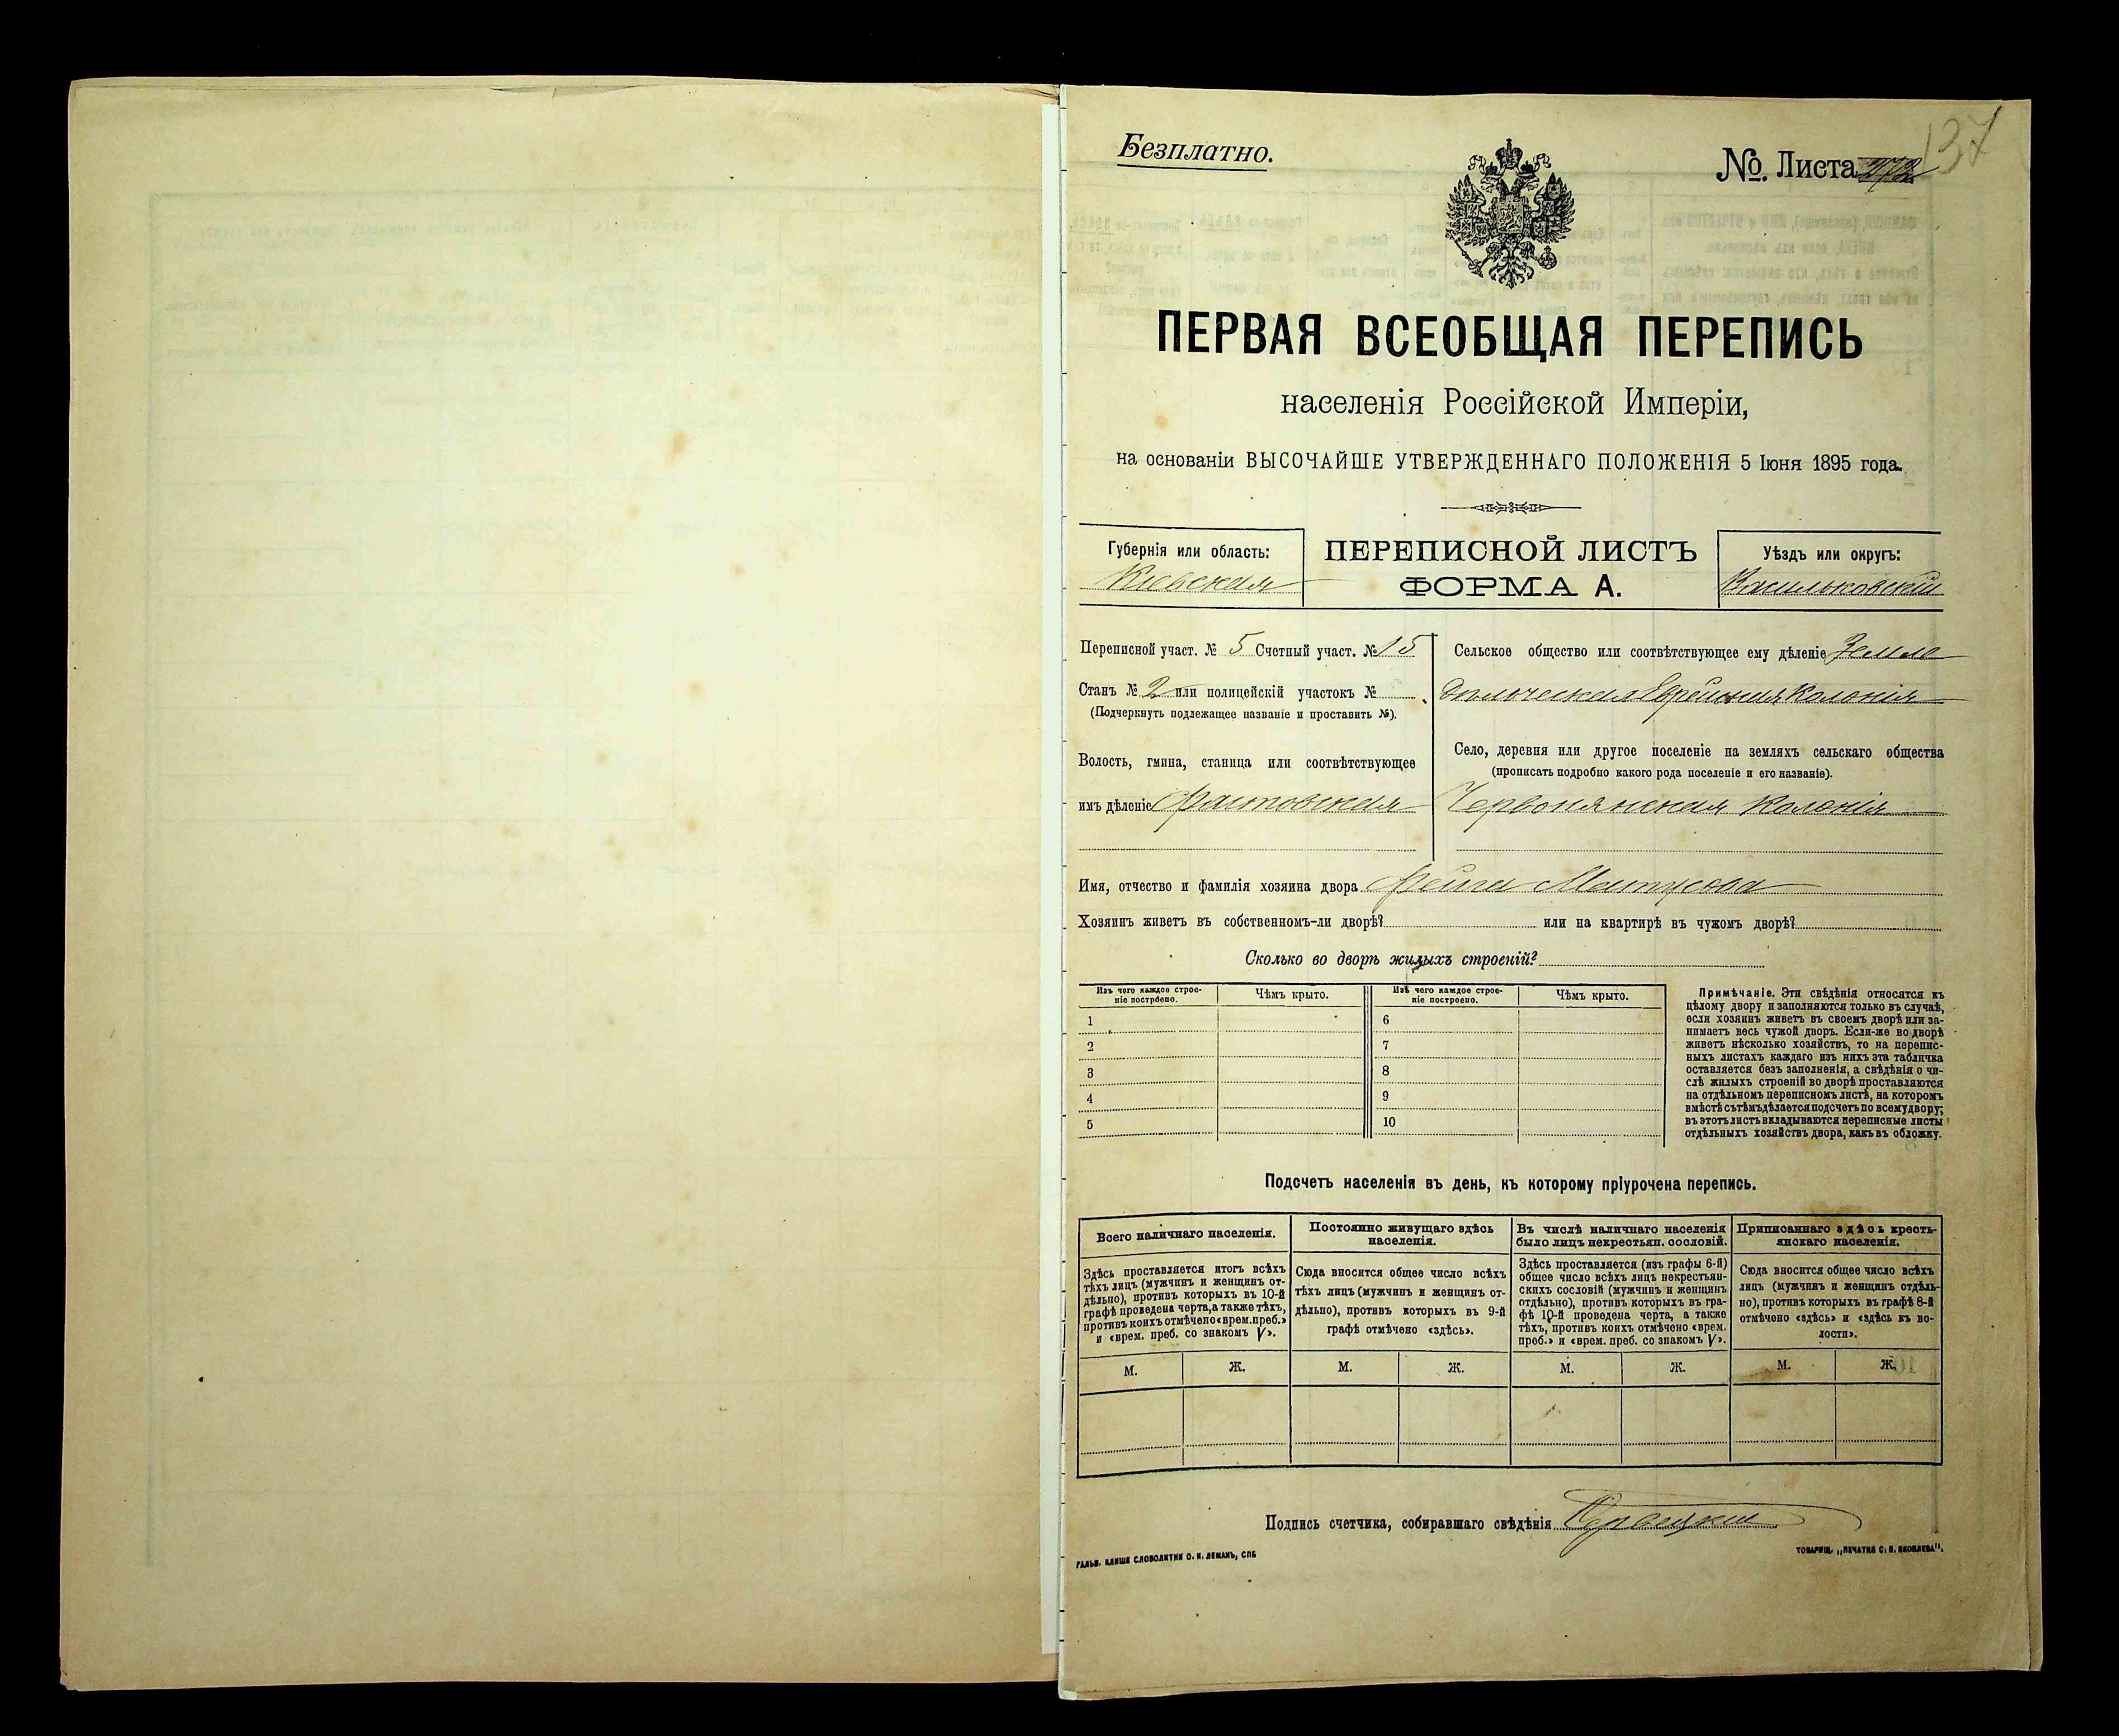 Безплатно.
№. Листа
137
ПЕРВАЯ ВСЕОБЩАЯ ПЕРЕПИСЬ
населенія Россійской Имперіи,
на основаніи ВЫСОЧАЙШЕ УТВЕРЖДЕННАГО ПОЛОЖЕНІЯ 5 Іюня 1895 года.
Губернія или область:
Кіевская
ПЕРЕПИСНОЙ ЛИСТЪ
ФОРМА А.
Уѣздъ или округъ:
Васильковскій
Переписной участ. № 5 Счетный участ. № 15
Станъ № 2 или полицейскій участокъ №
(Подчеркнуть подлежащее названіе и проставить №).
Волость, гмина, станица или соотвѣтствующее
имъ дѣленіе Фастовская
Сельское общество или соотвѣтствующее ему дѣленіе Земле
дѣльческая Еврейская Колонія
Село, деревня или другое поселеніе на земляхъ сельскаго общества
(прописать подробно какого рода поселеніе и его названіе).
Червонянская Колонія
Имя, отчество и фамилія хозяина двора Фейга Мантусова
Хозяинъ живетъ въ собственномъ-ли дворѣ? или на квартирѣ въ чужомъ дворѣ?
Сколько во дворѣ жилыхъ строеній?
Изъ чего каждое строе-
ніе построено.
Чѣмъ крыто.
Изъ чего каждое строе-
ніе построено.
Чѣмъ крыто.
1
2
3
4
5
6
7
8
9
10
Примѣчаніе. Эти свѣдѣнія относятся къ
цѣлому двору и заполняются только въ случаѣ,
если хозяинъ живетъ въ своемъ дворѣ или за-
нимаетъ весь чужой дворъ. Если-же во дворѣ
живетъ нѣсколько хозяйствъ, то на перепис-
ныхъ листахъ каждаго изъ нихъ эта табличка
оставляется безъ заполненія, а свѣдѣнія о чи-
слѣ жилыхъ строеній во дворѣ проставляются
на отдѣльномъ переписномъ листѣ, на которомъ
вмѣстѣ съ тѣмъ дѣлается подсчетъ по всему двору;
въ этотъ листъ вкладываются переписные листы
отдѣльныхъ хозяйствъ двора, какъ въ обложку.
Подсчетъ населенія въ день, къ которому пріурочена перепись.
Всего наличнаго населенія.
Здѣсь проставляется итогъ всѣхъ
тѣхъ лицъ (мужчинъ и женщинъ от-
дѣльно), противъ которыхъ въ 10-й
графѣ проведена черта, а также тѣхъ,
противъ коихъ отмѣчено «врем. преб.»
и «врем. преб. со знакомъ V».
Постоянно живущаго здѣсь
населенія.
Сюда вносится общее число всѣхъ
тѣхъ лицъ (мужчинъ и женщинъ от-
дѣльно), противъ которыхъ въ 9-й
графѣ отмѣчено «здѣсь».
Въ числѣ наличнаго населенія
было лицъ некрестьян. сословій.
Здѣсь проставляется (изъ графы 6-й)
общее число всѣхъ лицъ некрестьян-
скихъ сословій (мужчинъ и женщинъ
отдѣльно), противъ которыхъ въ гра-
фѣ 10-й проведена черта, а также
тѣхъ, противъ коихъ отмѣчено «врем.
преб.» и «врем. преб. со знакомъ V».
Приписаннаго здѣсь кресть-
янскаго населенія.
Сюда вносится общее число всѣхъ
лицъ (мужчинъ и женщинъ отдѣль-
но), противъ которыхъ въ графѣ 8-й
отмѣчено «здѣсь» и «здѣсь къ во-
лости».
М. Ж. М. Ж. М. Ж. М. Ж.
Подпись счетчика, собиравшаго свѣдѣнія
ГАЛЬВ. КЛИШЕ СЛОВОЛИТНИ О. И. ЛЕМАНЪ, СПБ
ТОВАРИЩ. „ПЕЧАТНЯ С. П. ЯКОВЛЕВА".